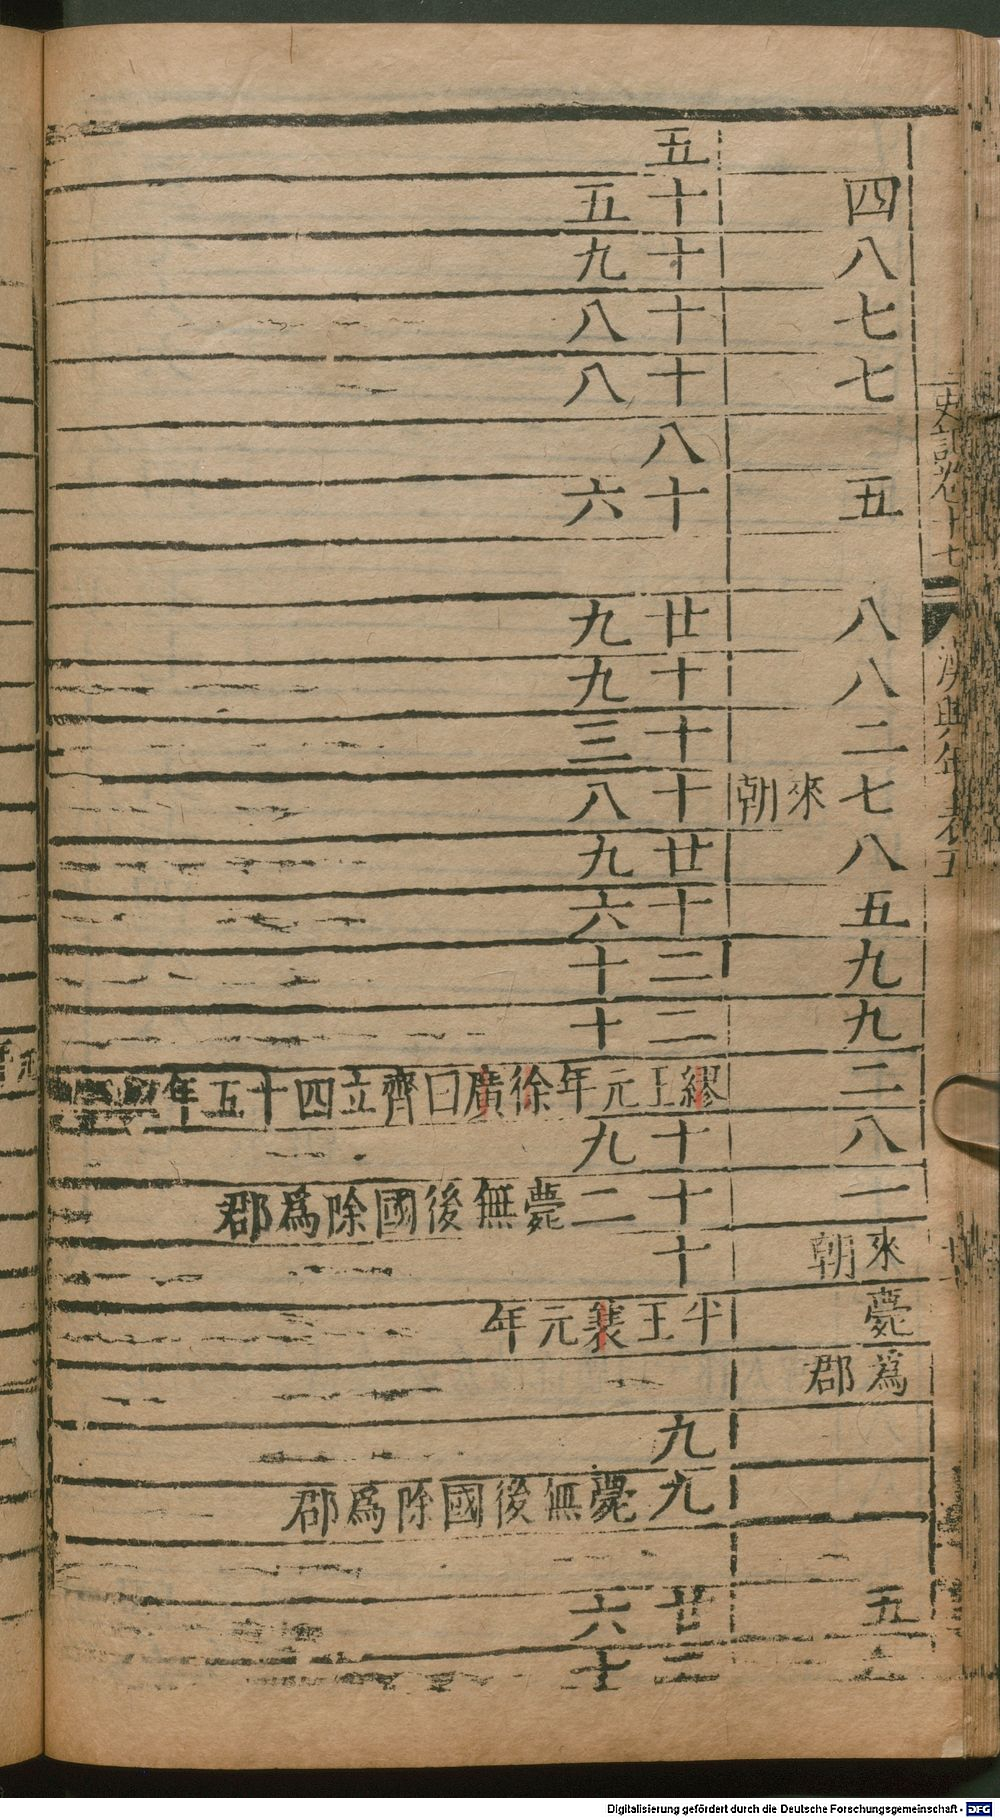 史記卷十七
漢興年表五
四
八
七
七
五
八
八
二
七來朝
八
五
九
九
二
八
一
來朝
薨
爲郡
五
五
十五
十九
十八
十八
八
十六
廿九
十九
十三
十八
廿九
十六
二十
二十
繆王元年徐廣曰齊立四十五年
十九
十二薨無後國除爲郡
十
平王襄元年
九
九薨無後國除爲郡
廿六
Digitalisierung gefördert durch die Deutsche Forschungsgemeinschaft - DFG